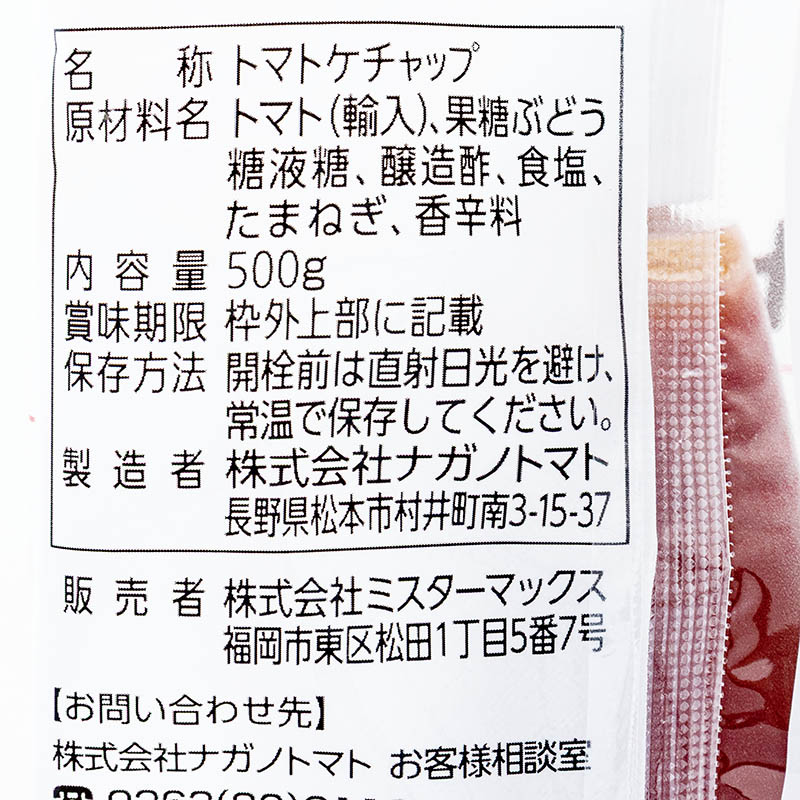 名称 トマトケチャップ
原材料名 トマト(輸入)、果糖ぶどう
糖液糖、醸造酢、食塩、
たまねぎ、香辛料
内容量 500g
賞味期限 枠外上部に記載
保存方法 開栓前は直射日光を避け、
常温で保存してください。
製造者 株式会社ナガノトマト
長野県松本市村井町南3-15-37
販売者 株式会社ミスターマックス
福岡市東区松田1丁目5番7号
【お問い合わせ先】
株式会社ナガノトマト お客様相談室